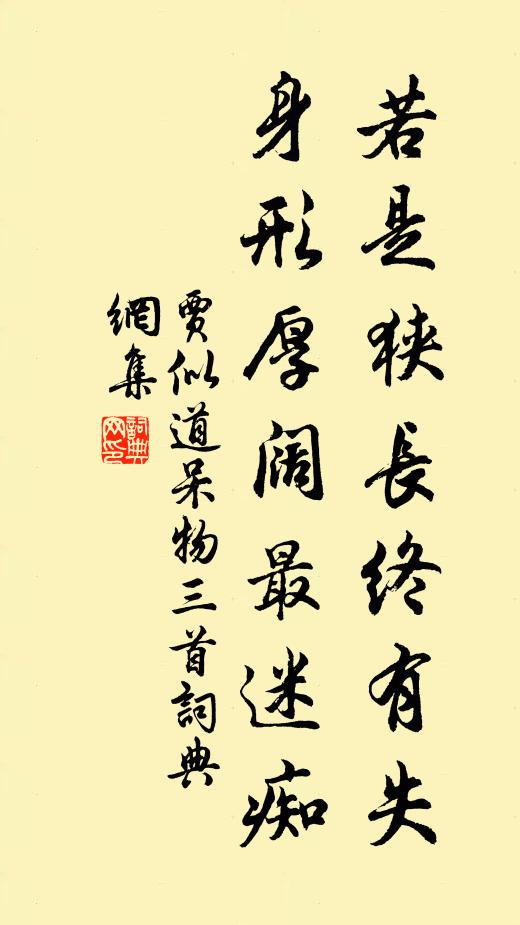 若是狹長終有失
身形厚阔最迷痴
賈似道呆物三首詞典
網集
詞典
网印